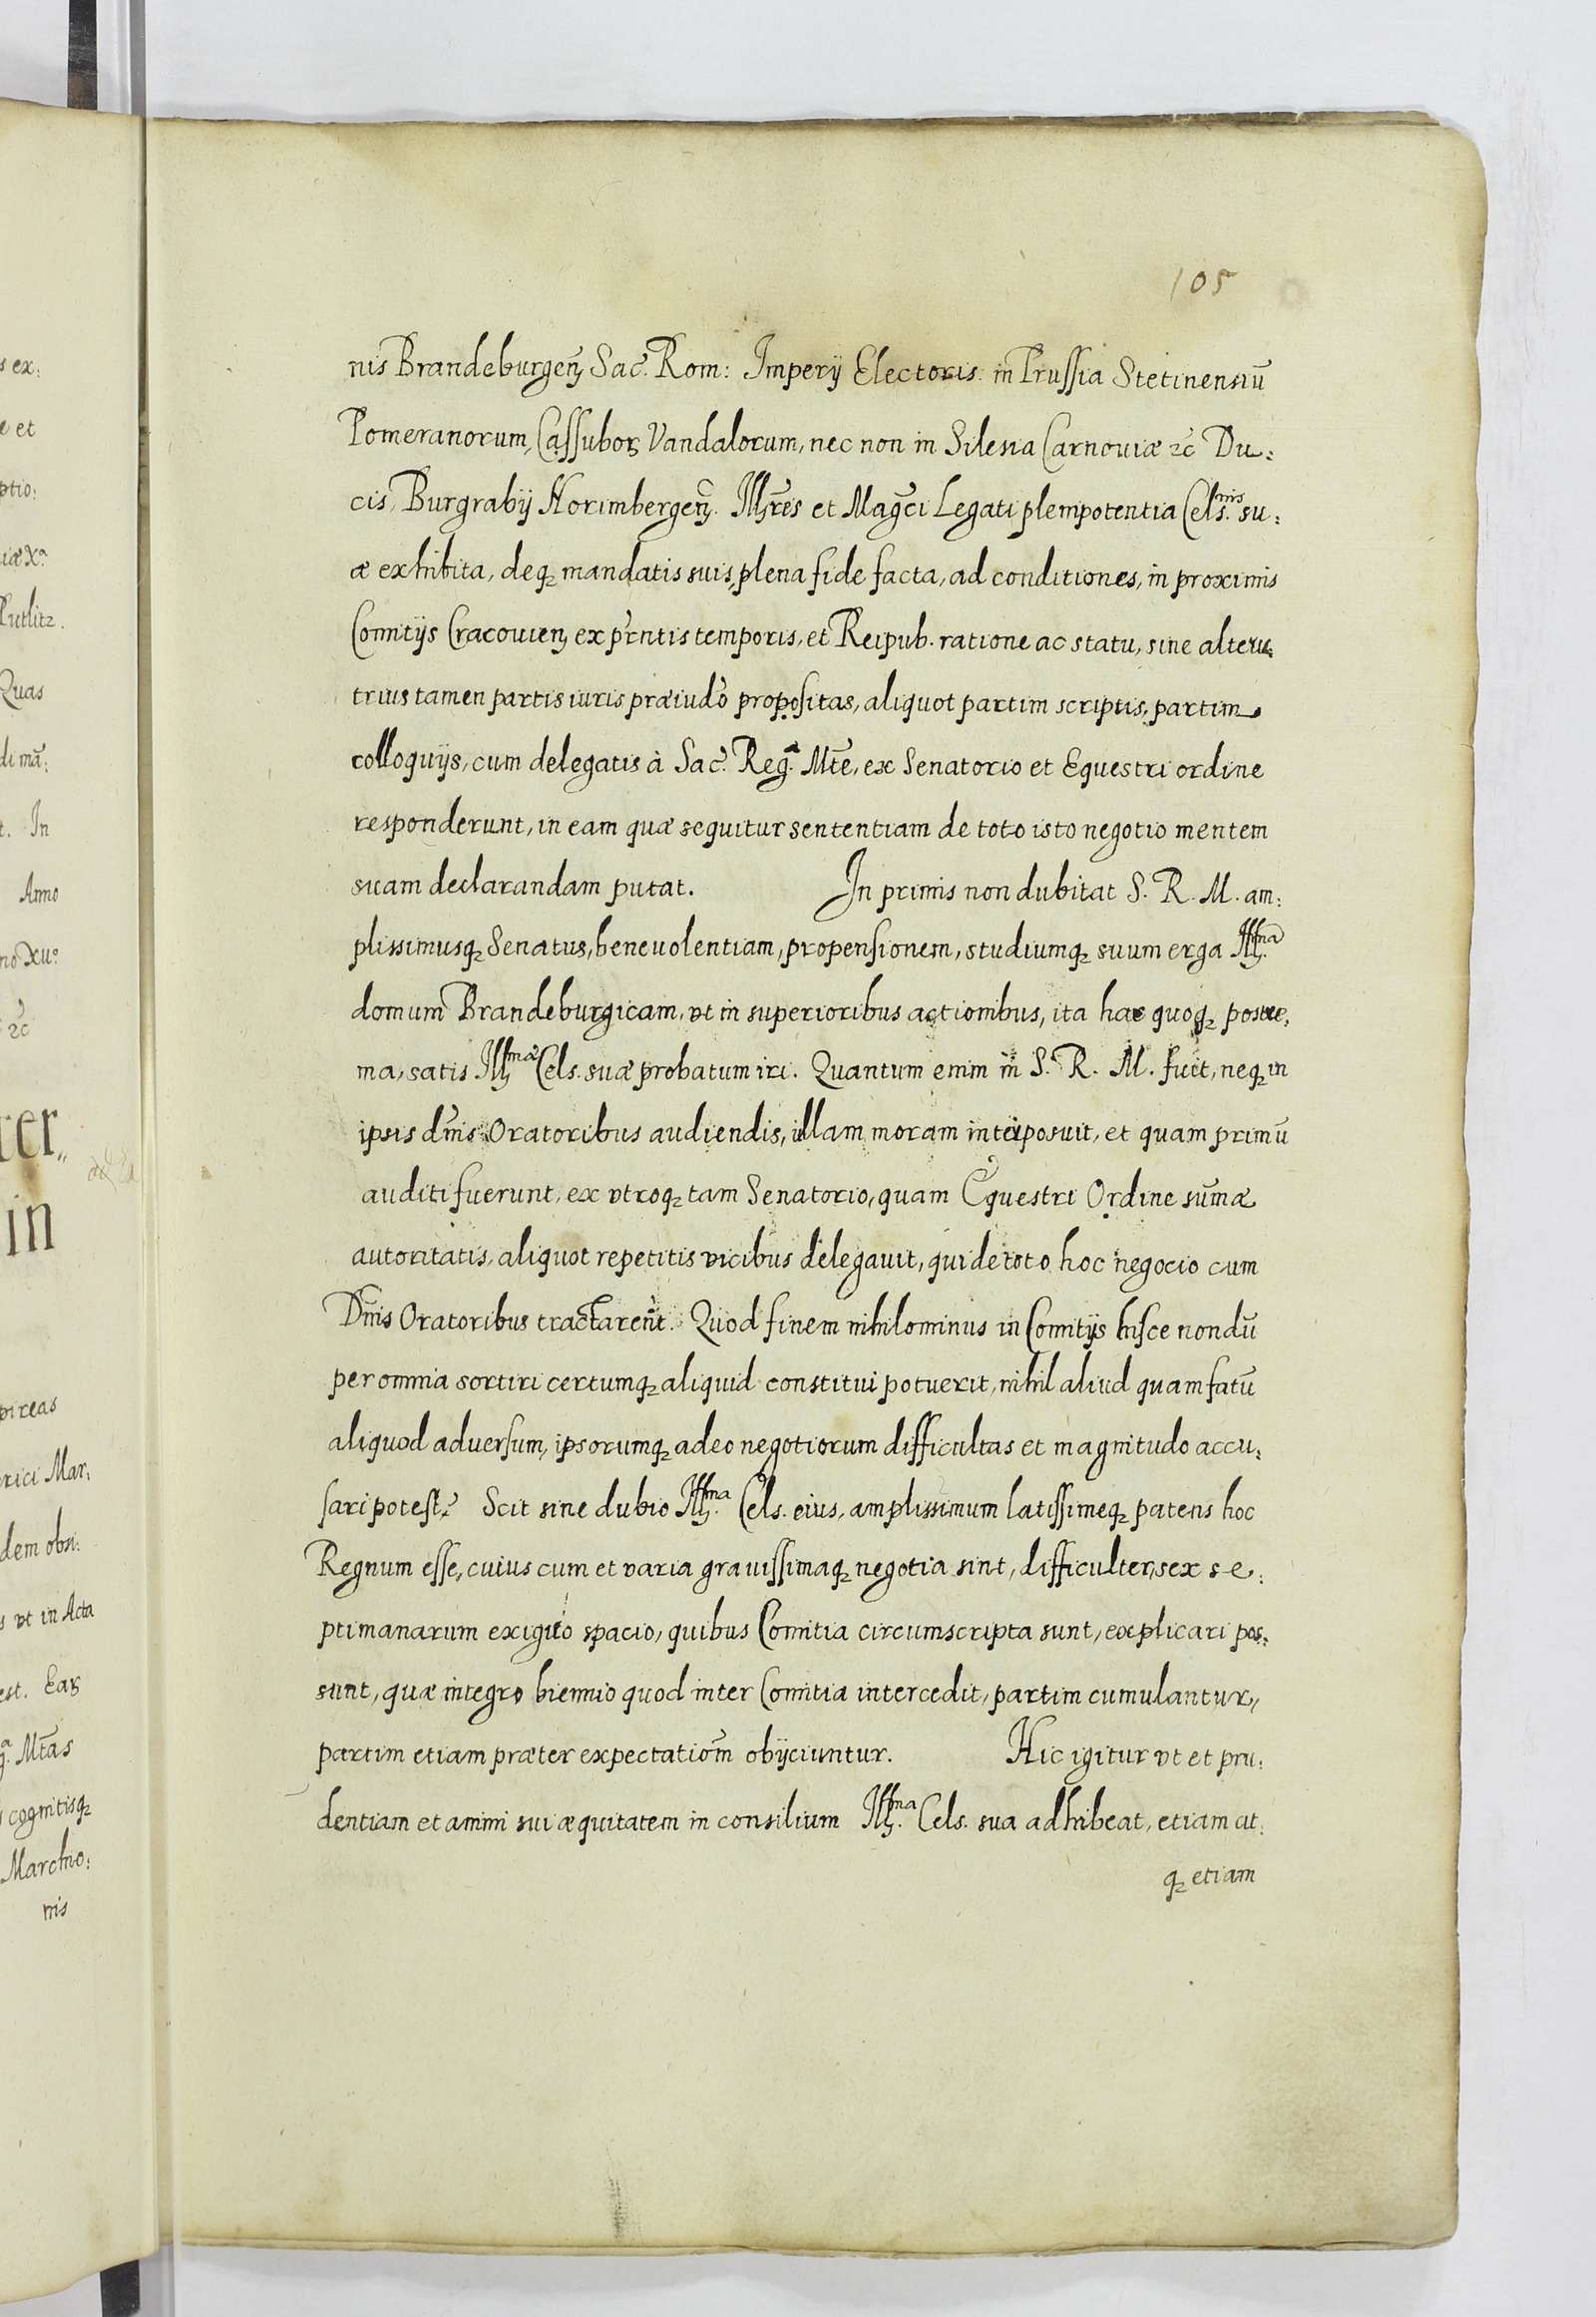 105
nis Brandeburgen̄ Sac̄. Rom: Imperij Electoris in Prussia Stetinensiū
Pomeranorum, Cassuboꝝ Vandalorum, nec non in Silesia Carnouiæ ꝛc̄ Du:
cis, Burgrabij Norimbergen̄. Illr̄es et Mag̅ci Legati plenipotentia Cels.nis su:
æ exhibita, deqꝫ mandatis suis, plena fide facta, ad conditiones, in proximis
Comitijs Cracouien̄ ex pr̄ntis temporis, et Reipub. ratione ac statu, sine alteru:
trius tamen partis iuris præiud̄o propositas, aliquot partim scriptis, partim
colloquijs, cum delegatis à Sac̄. Reg.ᵃ Mt̄e, ex Senatorio et Equestri ordine
responderunt, in eam quæ sequitur sententiam de toto isto negotio mentem
suam declarandam putat. In primis non dubitat S. R. M. am:
plissimusqꝫ Senatus, beneuolentiam, propensionem, studiumqꝫ suum erga Ill.ma
domum Brandeburgicam, vt in superioribus actionibus, ita hac quoqꝫ postre:
ma, satis Ill.mæ Cels. suæ probatum iri. Quantum enim in S. R. M. fuit, neqꝫ in
ipsis dn̄is Oratoribus audiendis, ullam moram interposuit, et quam primū
auditi fuerunt, ex vtroqꝫ tam Senatorio, quam Equestri Ordine sum̄æ
autoritatis, aliquot repetitis vicibus delegauit, qui de toto hoc negocio cum
Dn̄is Oratoribus tractaren̄t. Quod finem nihilominus in Comitijs hisce nondū
per omnia sortiri certumqꝫ aliquid constitui potuerit, nihil aliud quam fatū
aliquod aduersum, ipsorumqꝫ adeo negotiorum difficultas et magnitudo accu:
sari potest. Scit sine dubio Ill.ma Cels. eius, amplissimum latissimeqꝫ patens hoc
Regnum esse, cuius cum et varia grauissimaqꝫ negotia sint, difficulter, sex se:
ptimanarum exiguo spacio, quibus Comitia circumscripta sunt, explicari pos:
sunt, quæ integro biennio quod inter Comitia intercedit, partim cumulantur,
partim etiam præter expectatiom̄ obijciuntur. Hic igitur vt et pru:
dentiam et animi sui æquitatem in consilium Ill.ma Cels. sua adhibeat, etiam at:
qꝫ etiam
s ex:
e et
ptio:
Putlitz.
Quas
di mā:
t. In
Anno
no Xu°
ꝛc̄
ter
in
rici Mar:
dem obsi:
s vt in Acta
est. Eaꝝ
Mt̄as
cognitisqꝫ
Marchio:
nis